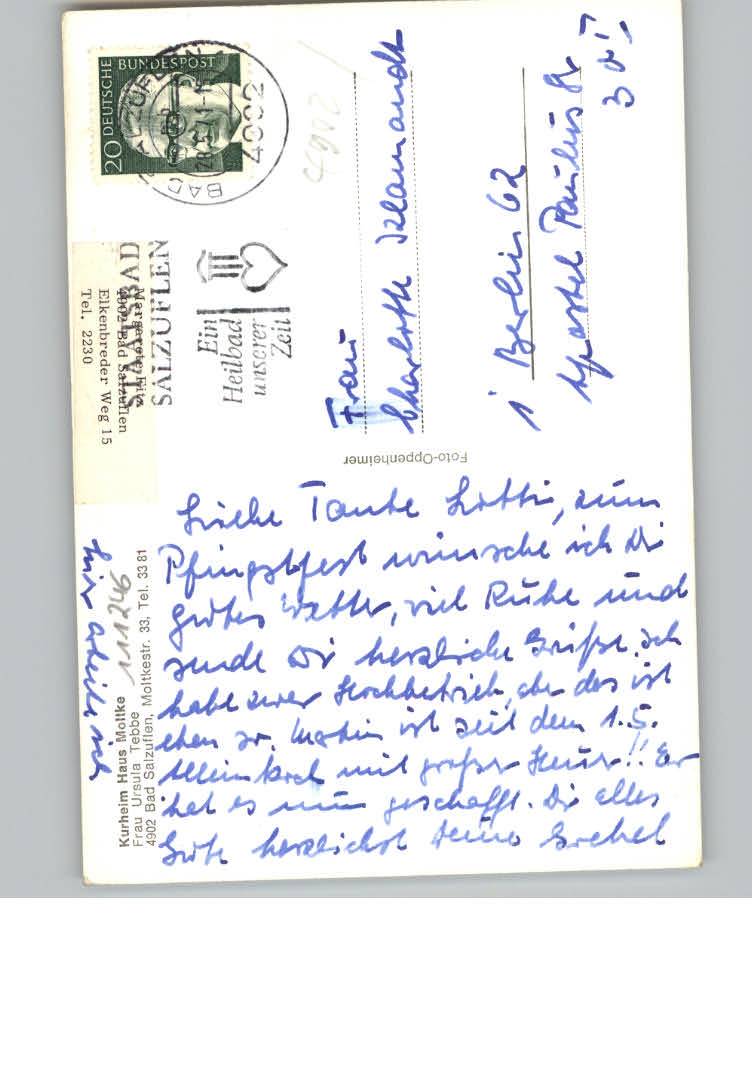 Liebe Tante Lotti, zum
Pfingstfest wünsche ich Dir
gutes Wetter, viel Ruhe und
sende Dir herzliche Grüße. Ich
habe zwar Hochbetrieb, aber das ist
eben so. Martin ist seit dem 1.5.
Alleinkoch mit großer !! Er
hat es nun geschafft. Dir alles
Gute herzlichst Deine Gretel
hier arbeite ich
111246
Kurheim Haus Moltke
Frau Ursula Tebbe
4902 Bad Salzuflen, Moltkestr. 33, Tel. 33 81
Foto-Oppenheimer
Frau
Charlotte
1 Berlin 62
Apostel Paulus Str
30 I
4902
DEUTSCHE BUNDESPOST
20
BAD SALZUFLEN
28.5.71
4902
STAATSBAD
SALZUFLEN
Ein
Heilbad
unserer
Zeit
4902 Bad Salzuflen
Elkenbreder Weg 15
Tel. 2230